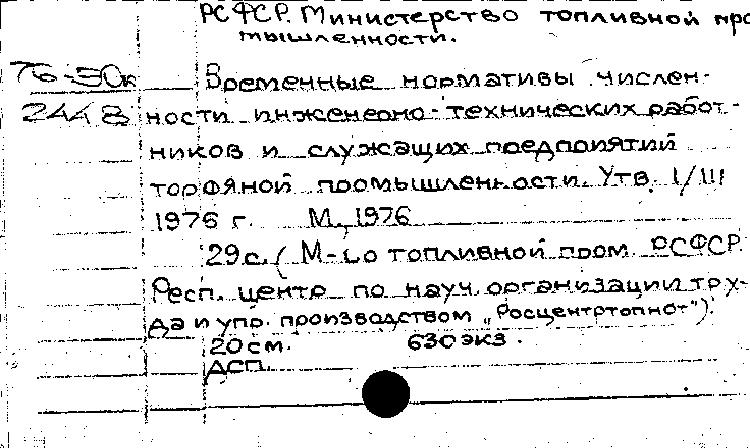 РСФСР. Министерство топливной про
мышленности.
76-50к Временные нормативы числен-
2448 ности инженерно-технических работ-
ников и служащих предприятий
торфяной промышленности. Утв. 1/III
1976 г. М., 1976
29с. (М-во топливной пром. РСФСР.
Респ. центр по науч. организации тру-
да и упр. производством „Росцентртопнот").
20см. 630экз.
ДСП.